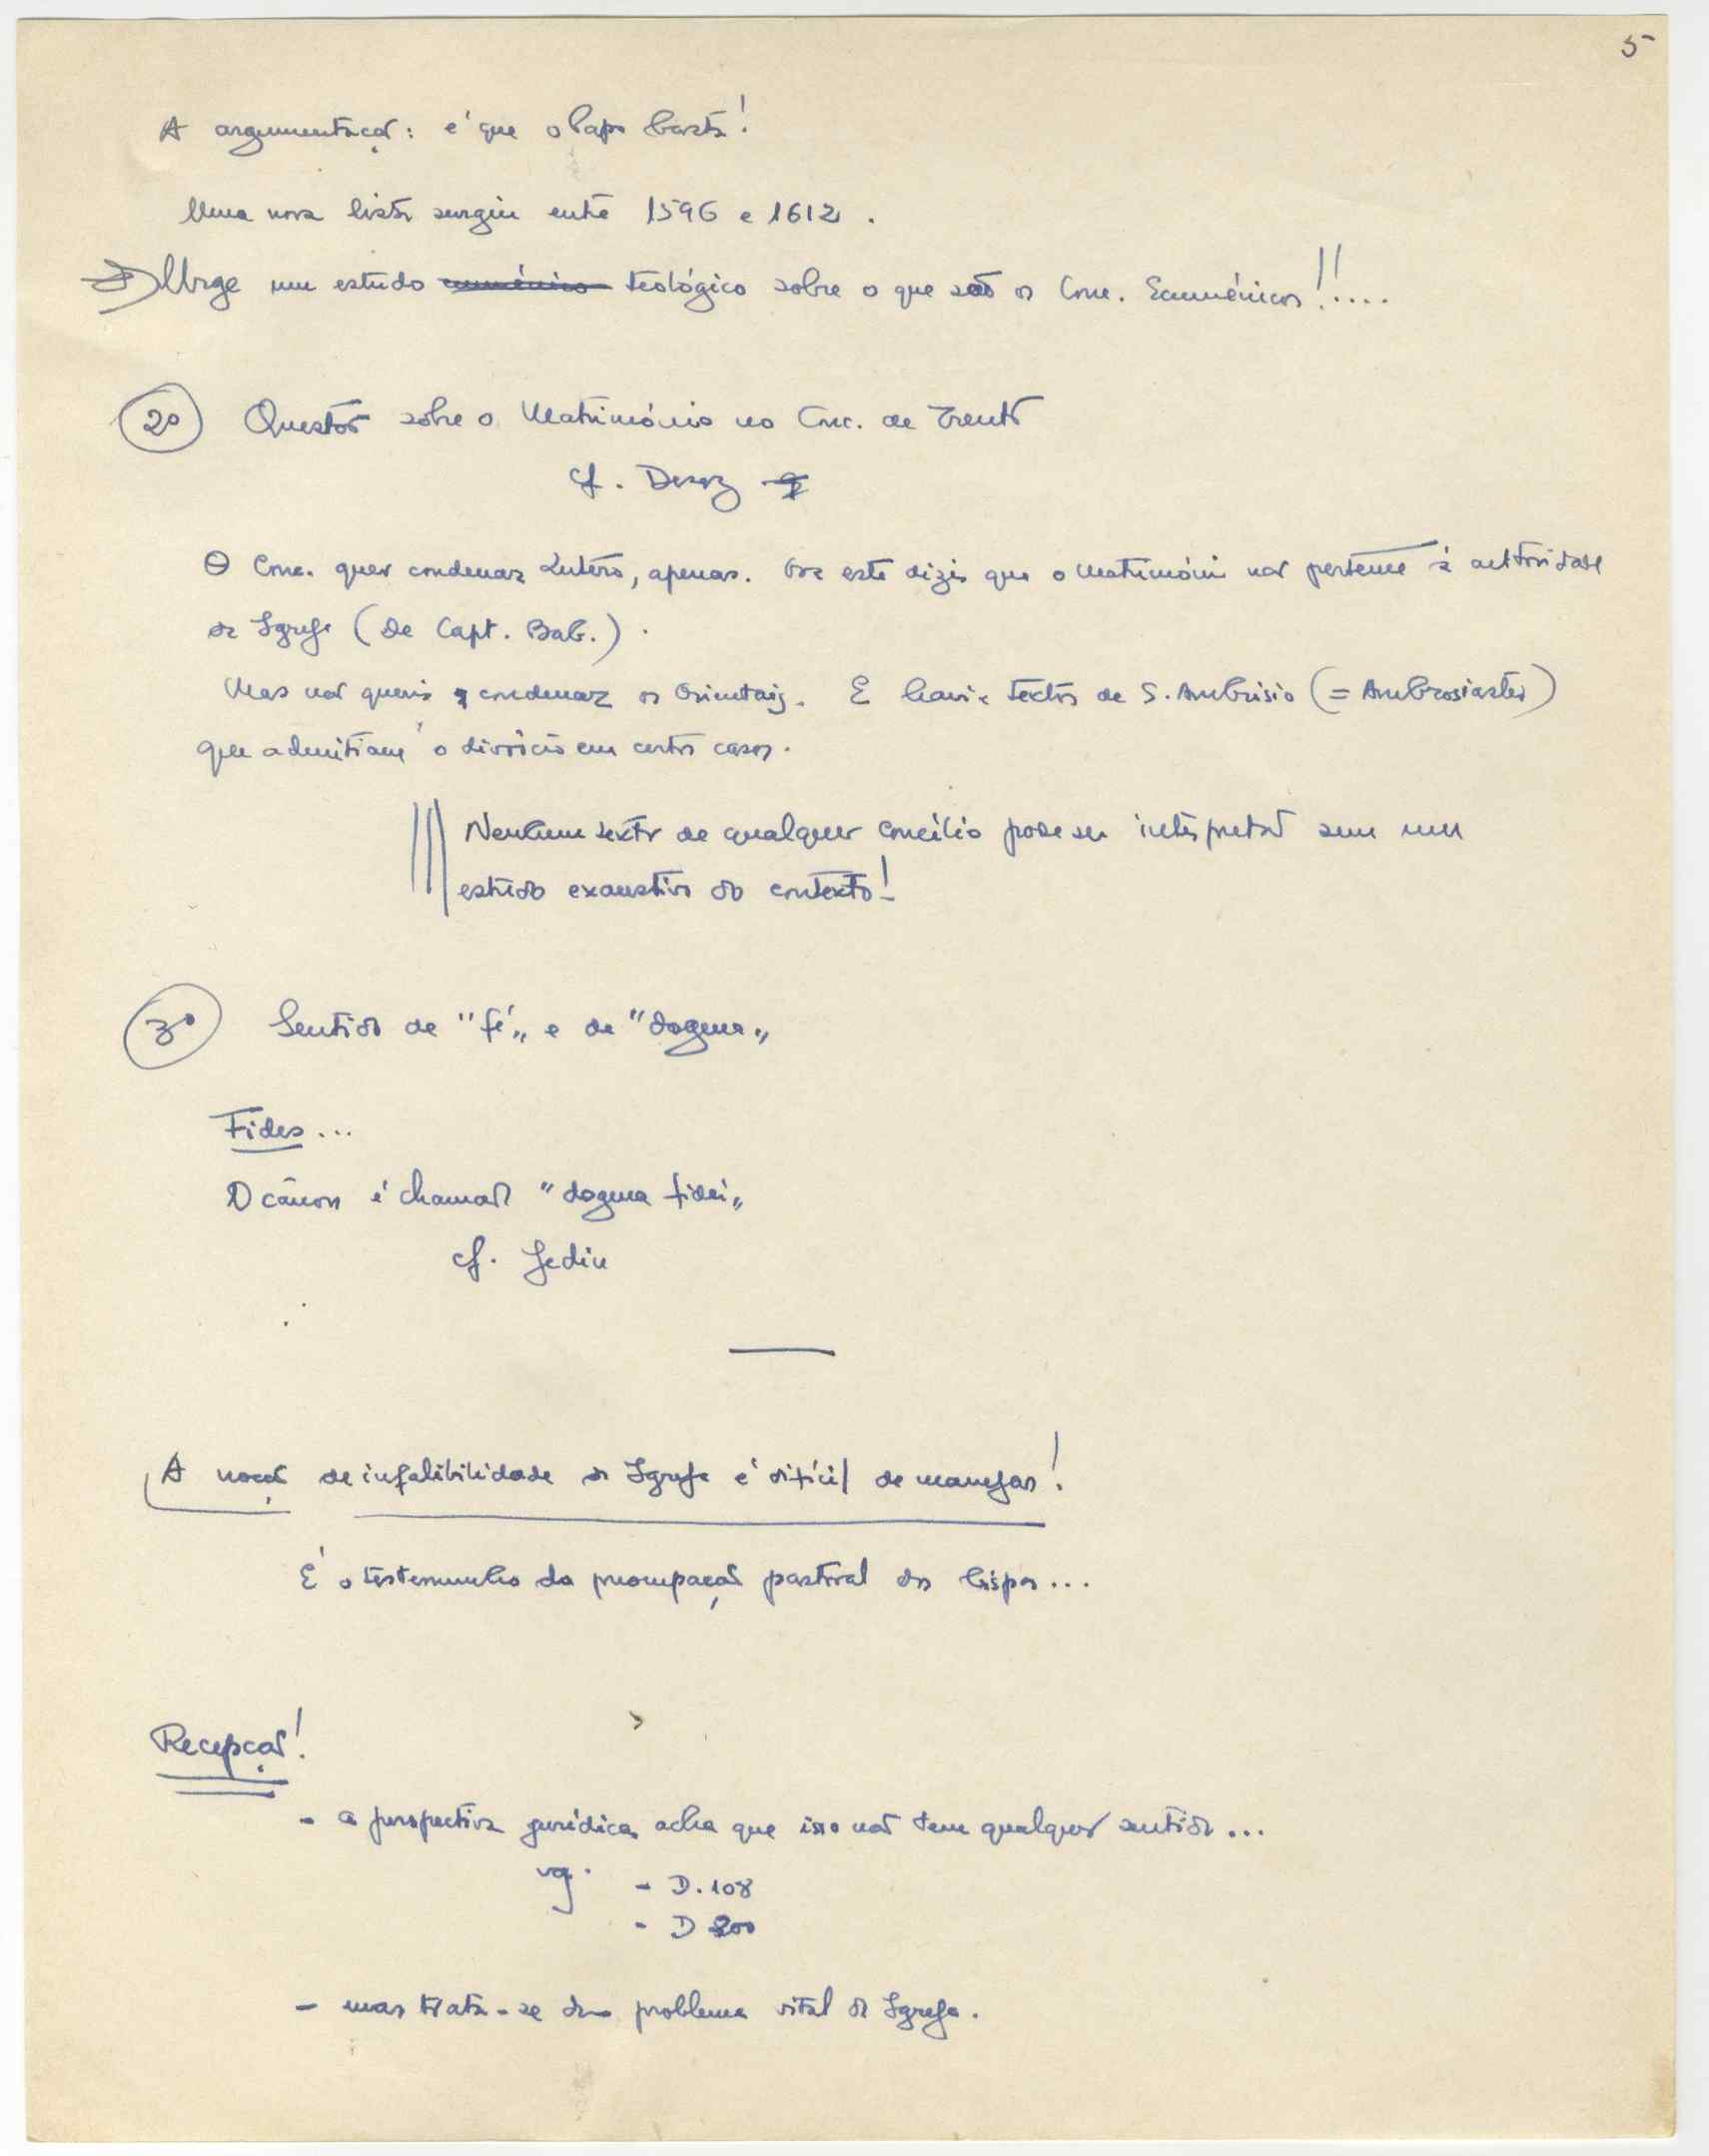 5
A argumentação: é que o Papa basta!
Uma nova lista surgiu entre 1596 e 1612.
Urge um estudo ecuménico teológico sobre o que são os Conc. Ecuménicos!!....
2º Questão sobre o Matrimónio no Conc. de Trento
cf.
O Conc. quer condenar Lutero, apenas. Ora este dizia que o Matrimónio não pertence à autoridade
da Igreja (De Capt. Bab.).
Mas não queria condenar os Orientais. E havia textos de S. Ambrósio (= Ambrosiaster)
que admitiam o divórcio em certos casos.
Nenhum texto de qualquer concílio pode ser interpretado sem um
estudo exaustivo do contexto!
3º Sentido de "fé" e de "dogma"
Fides...
O cânon é chamado "dogma fidei"
cf. Jedin
A noção de infalibilidade da Igreja é difícil de manejar!
É o testemunho da preocupação pastoral dos bispos...
Recepção!
- a perspectiva jurídica acha que isso não tem qualquer sentido...
vg. - D. 108
- D 200
- mas trata-se dum problema vital da Igreja.